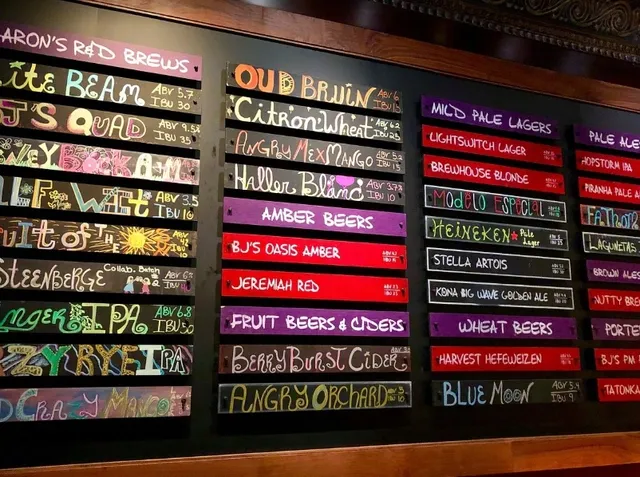 ARON'S R&D BREWS
ITE BEAM ABV 5.7 IBU 30
J'S QUAD ABV IBU 35
WIT ABV 3.5 IBU 16
UIT OF THE
STEENBERGE COLLAB. BATCH
NGER IPA ABV 6.8 IBU 50
ZZY RYE IPA
D CRAZY MANGO
OUD BRUIN ABV 6 IBU 15
CITRON WHEAT ABV 6.2
ANGRY MEX MANGO ABV 5.2 IBU 15
HALLER BLANC ABV 3.73 IBU 10
AMBER BEERS
BJ'S OASIS AMBER
JEREMIAH RED
FRUIT BEERS & CIDERS
BERRY BURST CIDER
ANGRY ORCHARD
MILD PALE LAGERS
LIGHTSWITCH LAGER
BREWHOUSE BLONDE
MODELO ESPECIAL
HEINEKEN PALE LAGER
STELLA ARTOIS
KONA BIG WAVE GOLDEN ALE
WHEAT BEERS
HARVEST HEFEWEIZEN
BLUE MOON ABV 5.4 IBU 9
PALE ALE
HOPSTORM IPA
PIRANHA PALE A
FATHOM
LAGUNITAS
BROWN ALE
NUTTY BRE
PORTE
BJ'S PM
TATONKA